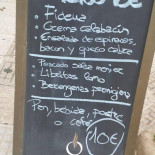 • Fideua
• Crema calabacín
• Ensalada de espinacas,
bacon y queso cabra
• Pescado salsa menier
• Libritos lomo
• Berengenas parmigiana
Pan, bebida, postre
o café
10€